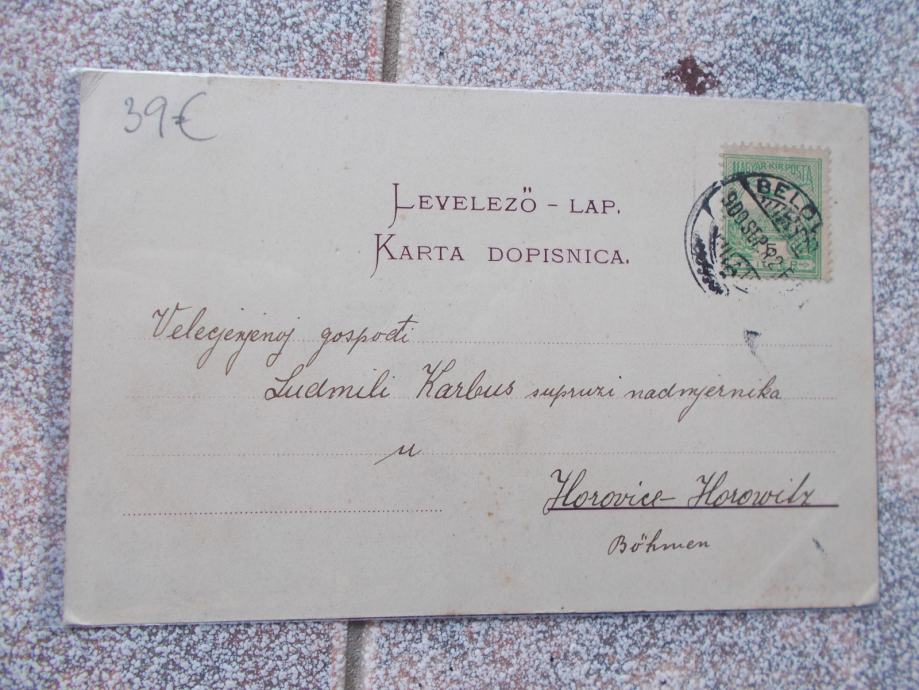 39€
LEVELEZŐ - LAP.
KARTA DOPISNICA.
MAGYAR·KIR·POSTA
BELOV
900 SEP
5
Velecjenjenoj gospođi
Ludmili Karbus supruzi nadmjernika
u
Horovice - Horowitz
Böhmen